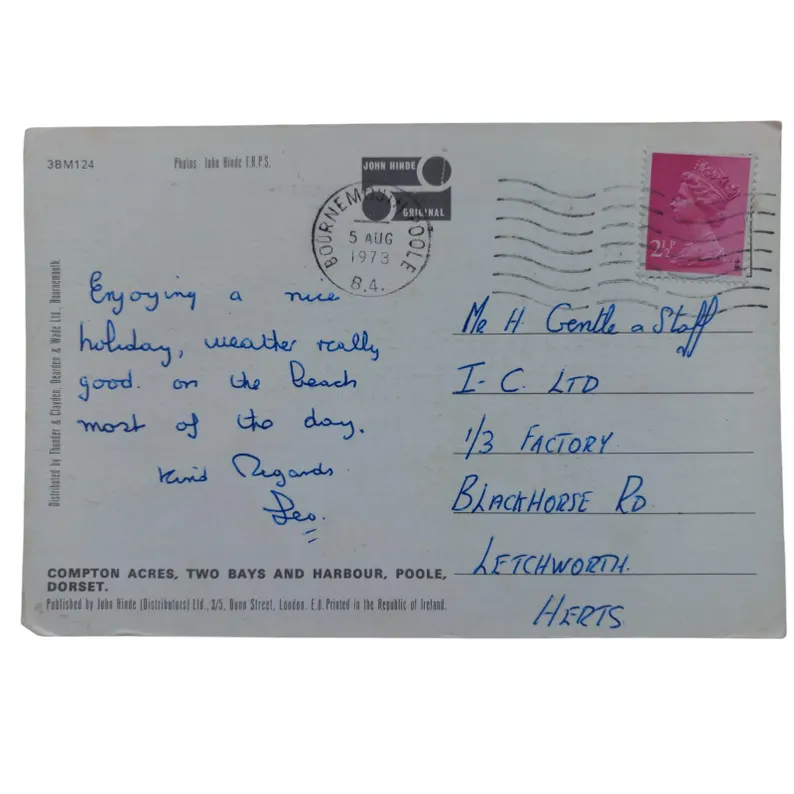 3BM124
Photos: John Hinde F.R.P.S.
JOHN HINDE
ORIGINAL
BOURNEMOUTH POOLE
5 AUG
1973
B.A.
2½P
Enjoying a nice
holiday, weather really
good. on the beach
most of the day.
Kind Regards
Leo.
Mr H. Gentle & Staff
I-C. LTD
1/3 FACTORY
BLACKHORSE RD
LETCHWORTH.
HERTS
Distributed by Thunder & Clayden, Dearden & Wade Ltd., Bournemouth
COMPTON ACRES, TWO BAYS AND HARBOUR, POOLE,
DORSET.
Published by John Hinde (Distributors) Ltd., 3/5, Dunn Street, London. E.8. Printed in the Republic of Ireland.